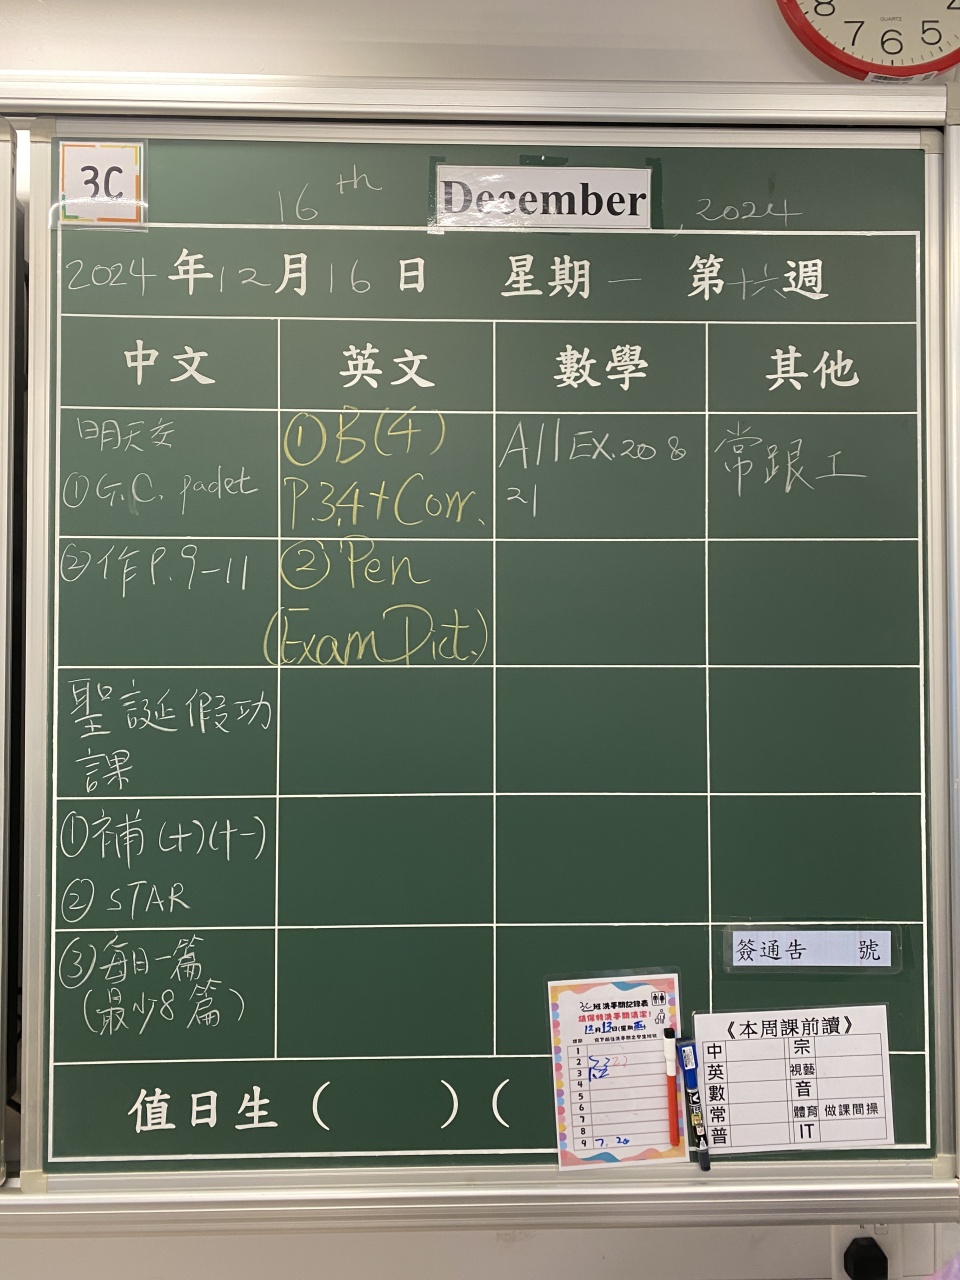 8 7 6 5 4
QUARTZ
3C
16th December, 2024
2024年12月16日 星期一 第十六週
中文 英文 數學 其他
明天交
①G.C. padet
①B(4)
P.3,4+Corr.
All EX.20 &
21
常跟工
②作P.9-11
②Pen
(Exam Dict.)
聖誕假功
課
①補(十)(十一)
②STAR
③每日一篇
(最少8篇)
簽通告 號
值日生( )(
3C班洗手間記錄表
請保持洗手間清潔!
12月13日(星期五)
1
2
3
4
5
6
7
8
9 7, 20
《本周課前讀》
中 宗
英 視藝
數 音
常 體育 做課間操
普 IT